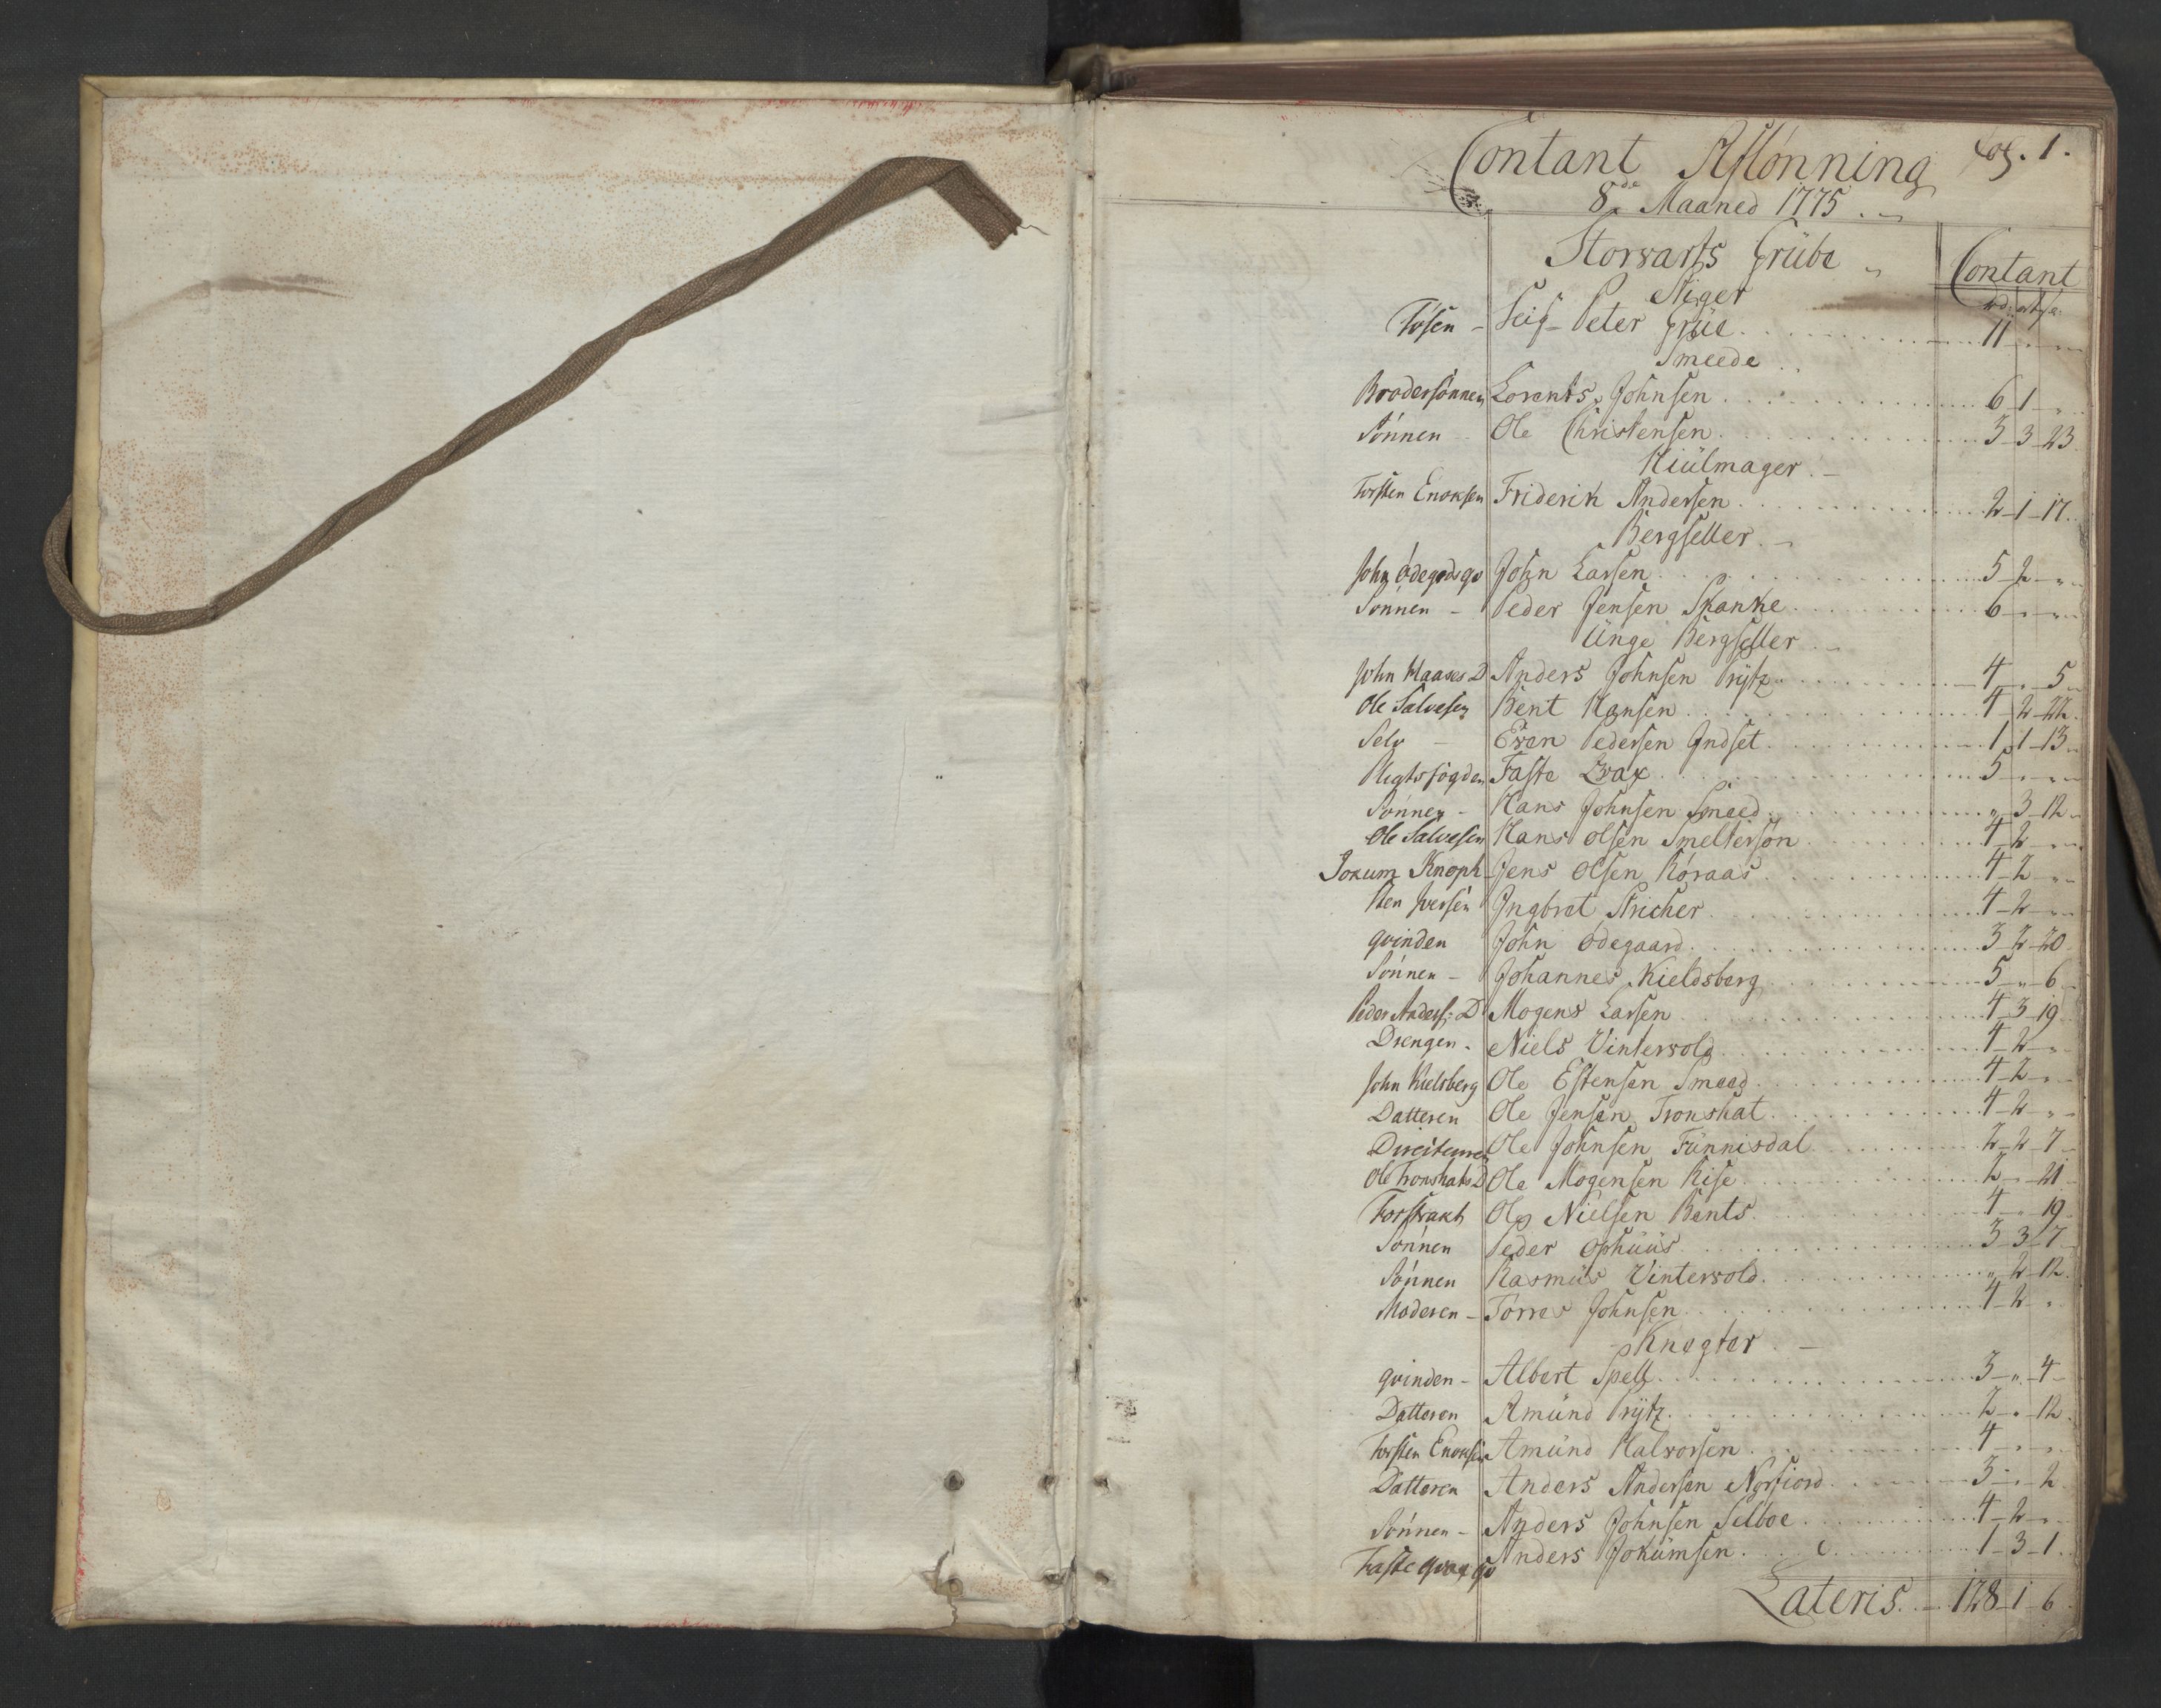 Contant Aflönning
Pag. 1.
8de Maaned 1775
Storvarts Grübe
Contant
Stiger
rd: ort: s:
Tösen - Seig Peter Grüe 11 - " - "
Smeede
Brodersönnen Lorents Johnsen 6 - 1 - "
Sönnen Ole Christensen 3 - 3 - 23
Hiülmager
Torsten Enoksen Friderik Andersen 2 - 1 - 17
Bergseller
John Ödegrds qv John Larsen 5 - 2 - "
Sönnen - Peder Jensen Skanke 6 - " - "
Ünge Bergseller
John Haases D Anders Johnsen Prÿtz 4 - " - 5
Ole Salvesen Bent Hansen 4 - 2 - 22
Selv - Even Pedersen Indset 1 - 1 - 13
Faste Qvax 5 - " - "
Sönnen - Hans Johnsen Smeed " - 3 - 12
Ole Salvesen Hans Olsen Smeltersön 4 - 2 - "
Jokum Knoph - Jens Olsen Röraas 4 - 2 - "
Sten Iversen Ingbret Stricher 4 - 2 - "
qvinden John Ödegaard 3 - 2 - 20
Sönnen - Johannes Kieldsberg 5 - " - 6
Peder Anders: D Mogens Larsen 4 - 3 - 19
Drengen. Niels Vintervold 4 - 2 - "
John Kielsberg Ole Estensen Smeed 4 - 2 - "
Datteren Ole Jensen Tronshat 4 - 2 - "
Direkteuren Ole Johnsen Fünnisdal 2 - 2 - 7
Ole Tronshats D Ole Mogensen Rise 2 - " - 21
Forstrakt Ole Nielsen Bents 4 - " - 19
Sönnen Peder Ophüüs 3 - 3 - 7
Sönnen Rasmüs Vintervold " - 2 - 12
Moderen - Torres Johnsen 4 - 2 - "
Knegter
qvinden - Albert Spell 3 - " - 4
Datteren Amünd Prÿtz 2 - " - 12
Torsten Enoksen Amünd Halvorsen 4 - " - "
Datteren Anders Andersen Norfiord 3 - " - 2
Sönnen - Anders Johnsen Selboe 4 - 2 - "
Faste Qvax qv Anders Jokümsen 1 - 3 - 1
Lateris - 128 - 1 - 6